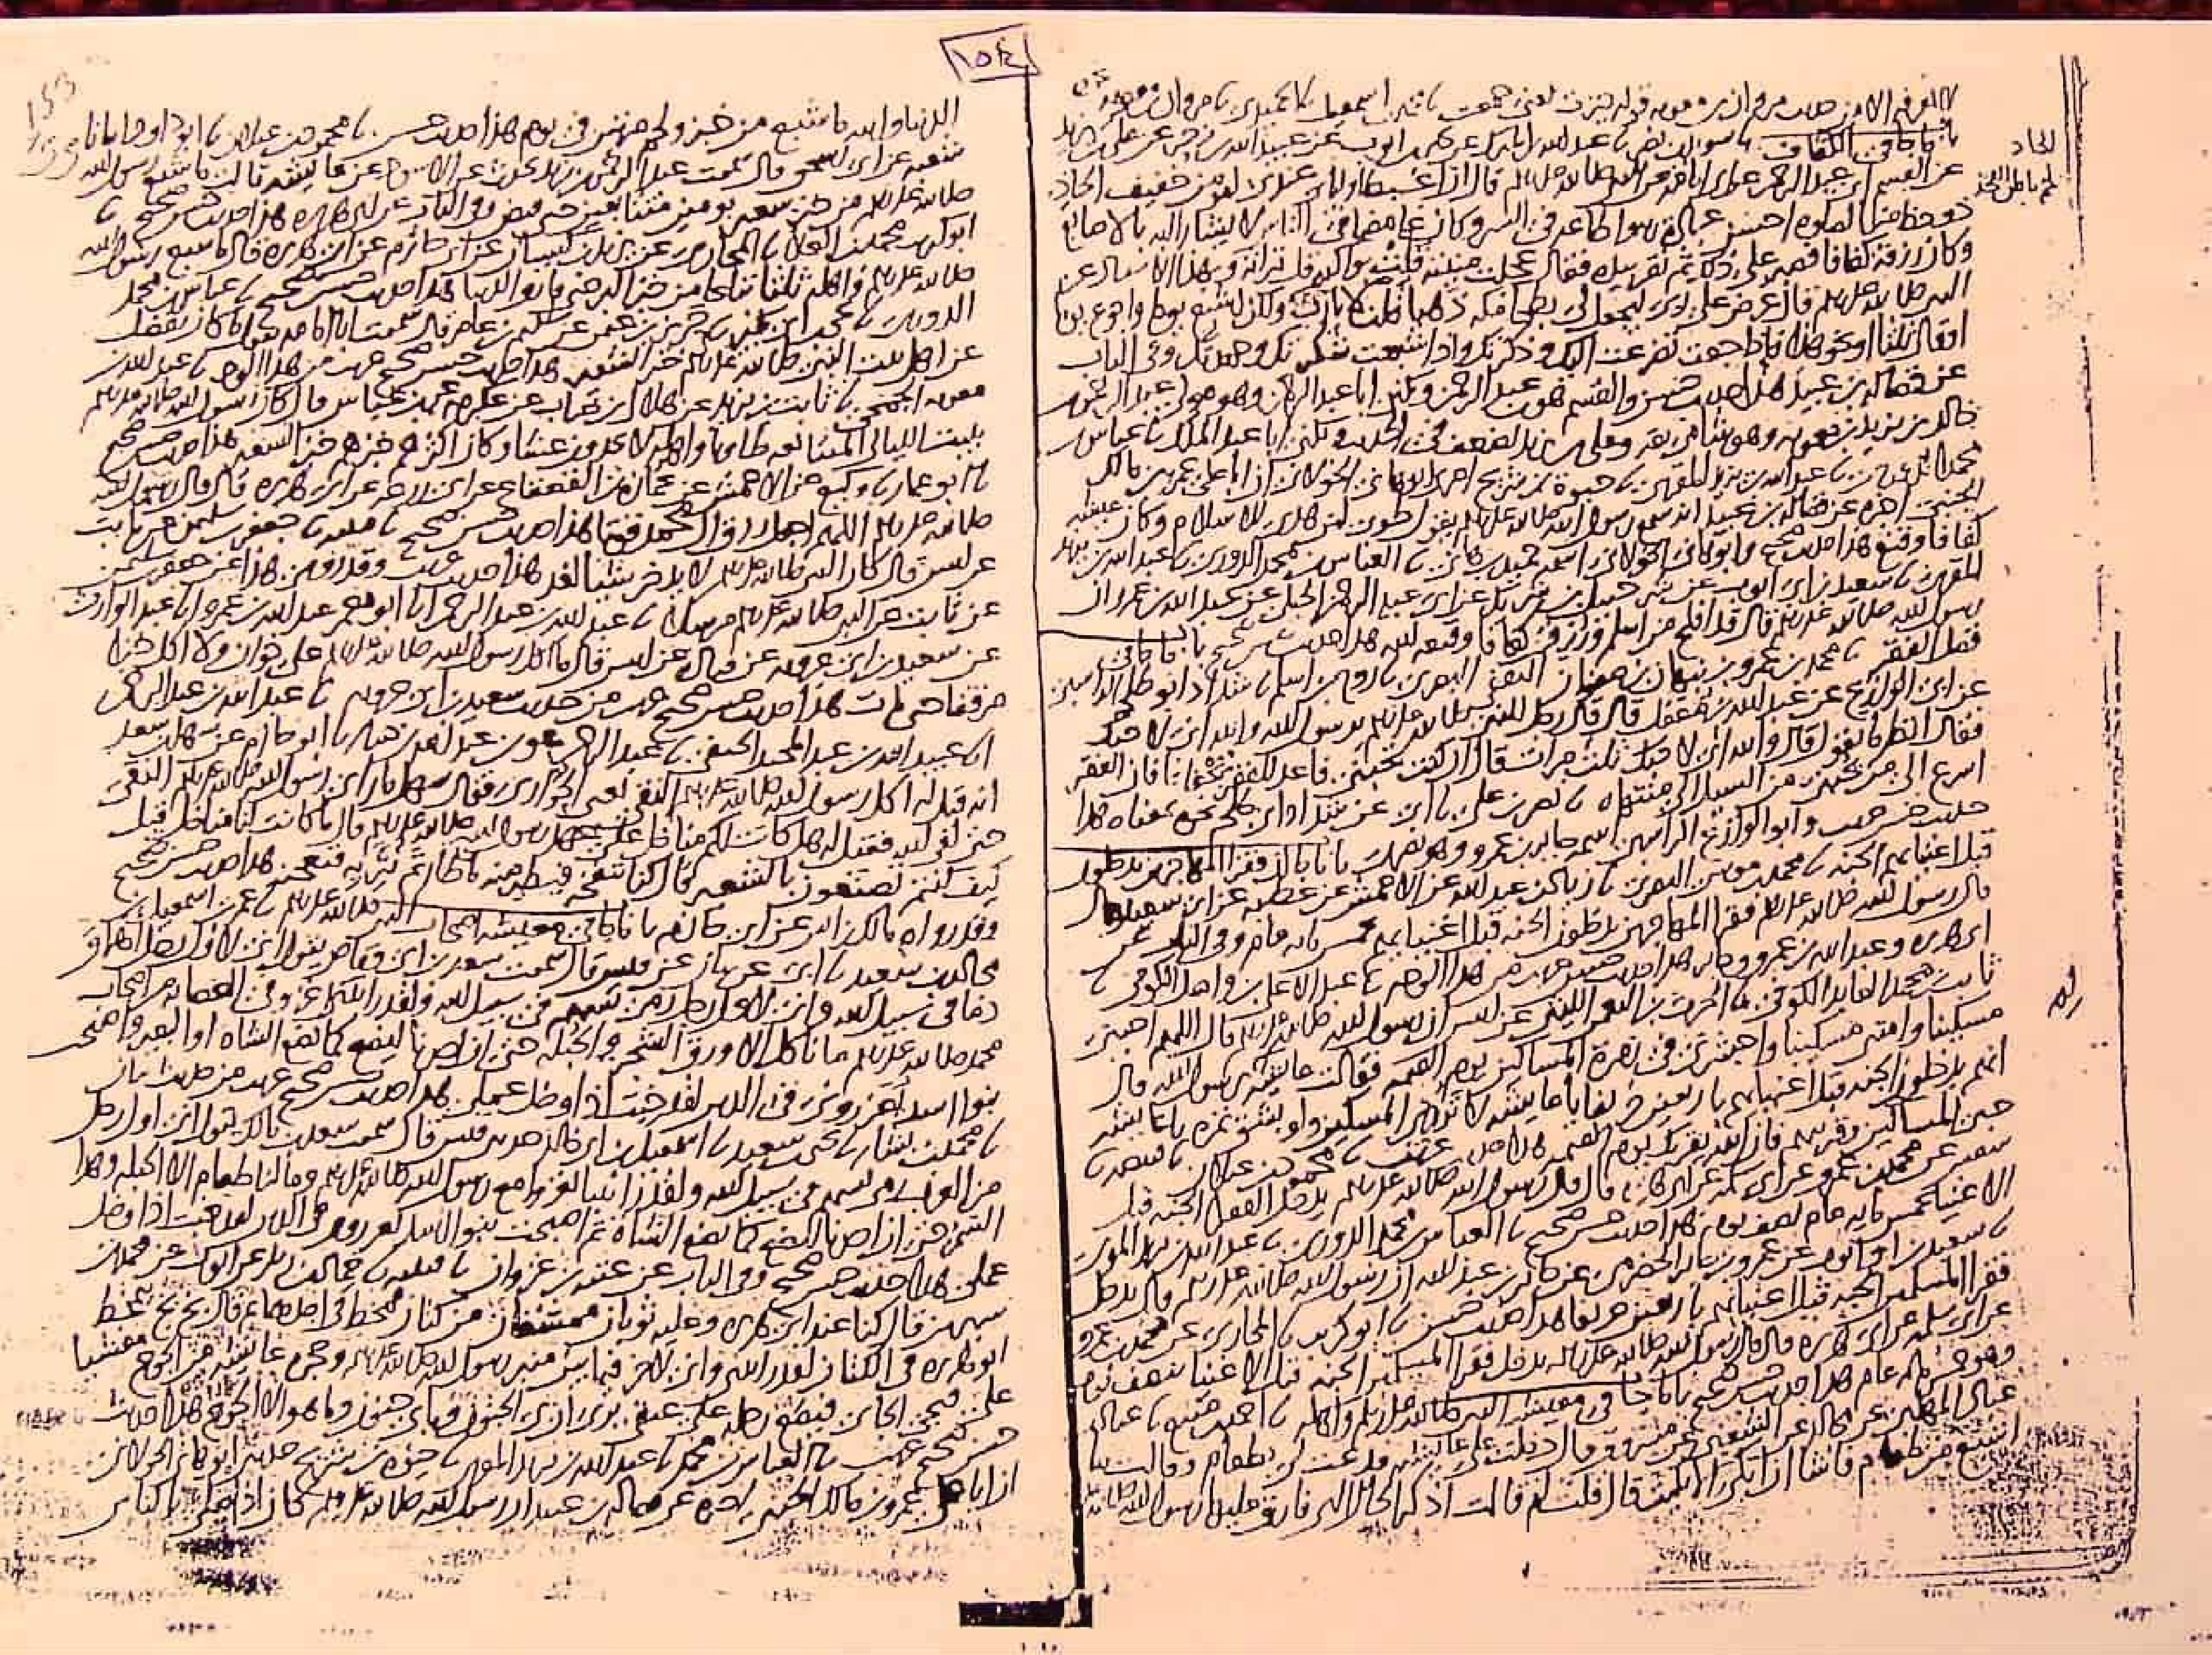 ١٥٤
لا نعرفه الا من حديث مروان بن معوية
باب ما جا في الكفاف سويد بن نصر عبد الله بن المبارك عن يحيى بن ايوب عن عبيد الله بن زحر عن علي بن يزيد
عن القسم ابي عبد الرحمن عن ابي امامة عن النبي صلى الله عليه وسلم قال ان اغبط اوليائي عندي لمومن خفيف الحاذ
ذو حظ من الصلوه احسن عبادة ربه واطاعه في السر وكان غامضا في الناس لا يشار اليه بالاصابع
وكان رزقه كفافا فصبر على ذلك ثم نقر بيده فقال عجلت منيته قلت بواكيه قل تراثه وبهذا الاسناد عن
النبي صلى الله عليه وسلم قال عرض علي ربي ليجعل لي بطحا مكه ذهبا قلت لا يا رب ولكن اشبع يوما واجوع يوما
او قال ثلثا او نحو هذا فاذا جعت تضرعت اليك وذكرتك واذا شبعت شكرتك وحمدتك وفي الباب
عن فضاله بن عبيد هذا حديث حسن والقسم هو بن عبد الرحمن ويكنى ابا عبد الرحمن وهو مولى عبد الرحمن بن
خالد بن يزيد بن معوية وهو شامي ثقه وعلي بن يزيد يضعف في الحديث ويكنى ابا عبد الملك عباس بن
محمد الدوري عبد الله بن يزيد المقري حيوة بن شريح اخبرني ابو هاني الخولاني ان ابا علي عمرو بن مالك
الجنبي اخبره عن فضاله بن عبيد انه سمع رسول الله صلى الله عليه وسلم يقول طوبى لمن هدي للاسلام وكان عيشه
كفافا وقنع هذا حديث صحيح وابو هاني الخولاني اسمه حميد بن هاني العباس بن محمد الدوري عبد الله بن يزيد
المقري سعيد بن ابي ايوب عن شرحبيل بن شريك عن ابي عبد الرحمن الحبلي عن عبد الله بن عمرو ان
رسول الله صلى الله عليه وسلم قال قد افلح من اسلم ورزق كفافا وقنعه الله هذا حديث حسن صحيح باب ما جا في
فضل الفقر محمد بن عمرو بن نبهان بن صفوان الثقفي البصري روح بن اسلم شداد ابو طلحه الراسبي
عن ابي الوازع عن عبد الله بن مغفل قال قال رجل للنبي صلى الله عليه وسلم يرسول الله والله اني لاحبك
فقال انظر ما تقول قال والله اني لاحبك ثلث مرات قال ان كنت تحبني فاعد للفقر تجفافا فان الفقر
اسرع الى من يحبني من السيل الى منتهاه نصر بن علي ابي عن شداد ابي طلحه نحوه بمعناه هذا
حديث حسن غريب وابو الوازع الراسبي اسمه جابر بن عمرو وهو بصري باب ما جا ان فقرا المهاجرين يدخلون
قبل اغنيايهم الجنه محمد بن موسى البصري زياد بن عبد الله عن الاعمش عن عطيه عن ابي سعيد قال
قال رسول الله صلى الله عليه وسلم فقرا المهاجرين يدخلون الجنه قبل اغنيايهم بخمس مايه عام وفي الباب عن
ابي هريره وعبد الله بن عمرو وجابر هذا حديث حسن غريب من هذا الوجه عبد الاعلى بن واصل الكوفي
ثابت بن محمد العابد الكوفي الحرث بن النعمن الليثي عن انس ان رسول الله صلى الله عليه وسلم قال اللهم احيني
مسكينا وامتني مسكينا واحشرني في زمرة المساكين يوم القيمه فقالت عايشه لم يرسول الله قال
انهم يدخلون الجنه قبل اغنيايهم باربعين خريفا يا عايشه لا تردي المسكين ولو بشق تمره يا عايشه
حبي المساكين وقربيهم فان الله يقربك يوم القيمه هذا حديث غريب محمود بن غيلان قبيصه
سفين عن محمد بن عمرو عن ابي سلمه عن ابي هريره قال قال رسول الله صلى الله عليه وسلم يدخل الفقرا الجنه قبل
الاغنيا بخمس مايه عام نصف يوم هذا حديث حسن صحيح العباس بن محمد الدوري عبد الله بن يزيد المقري
سعيد بن ابي ايوب عن عمرو بن جابر الحضرمي عن جابر بن عبد الله ان رسول الله صلى الله عليه وسلم قال يدخل
فقرا المسلمين الجنه قبل اغنيايهم باربعين خريفا هذا حديث حسن ابو كريب المحاربي عن محمد بن عمرو
عن ابي سلمه عن ابي هريره قال قال رسول الله صلى الله عليه وسلم يدخل فقرا المسلمين الجنه قبل الاغنيا بنصف يوم
وهو خمس مايه عام هذا حديث حسن صحيح باب ما جا في معيشه النبي صلى الله عليه وسلم واهله احمد بن منيع عباد بن
عباد المهلبي عن مجالد عن الشعبي عن مسروق قال دخلت على عايشه فدعت لي بطعام وقالت ما
اشبع من طعام فاشا ان ابكي الا بكيت قال قلت لم قالت اذكر الحال التي فارق عليها رسول الله صلى الله
الدنيا والله ما شبع من خبز ولحم مرتين في يوم هذا حديث حسن محمود بن غيلان ابو داود انبانا
شعبه عن ابي اسحق قال سمعت عبد الرحمن بن يزيد يحدث عن الاسود عن عايشه قالت ما شبع رسول الله
صلى الله عليه وسلم من خبز شعير يومين متتابعين حتى قبض وفي الباب عن ابي هريره هذا حديث حسن صحيح
ابو كريب محمد بن العلا المحاربي عن يزيد بن كيسان عن ابي حازم عن ابي هريره قال ما شبع رسول الله
صلى الله عليه وسلم واهله ثلثا تباعا من خبز البر حتى فارق الدنيا هذا حديث حسن صحيح عباس بن محمد
الدوري يحيى بن ابي بكير حريز بن عثمن عن سليم بن عامر قال سمعت ابا امامه يقول ما كان يفضل
عن اهل بيت النبي صلى الله عليه وسلم خبز الشعير هذا حديث حسن صحيح غريب من هذا الوجه عبد الله بن
معويه الجمحي ثابت بن يزيد عن هلال بن خباب عن عكرمه عن بن عباس قال كان رسول الله صلى الله عليه وسلم
يبيت الليالي المتتابعه طاويا واهله لا يجدون عشا وكان اكثر خبزهم خبز الشعير هذا حديث حسن صحيح
ابو عمار وكيع عن الاعمش عن عماره بن القعقاع عن ابي زرعه عن ابي هريره قال قال رسول الله
صلى الله عليه وسلم اللهم اجعل رزق ال محمد قوتا هذا حديث حسن صحيح قتيبه جعفر بن سليمن عن ثابت
عن انس قال كان النبي صلى الله عليه وسلم لا يدخر شيئا لغد هذا حديث غريب وقد روي هذا عن جعفر بن سليمن
عن ثابت عن النبي صلى الله عليه وسلم مرسلا عبد الله بن عبد الرحمن انا ابو معمر عبد الله بن عمرو انا عبد الوارث
عن سعيد بن ابي عروبه عن قتاده عن انس قال ما اكل رسول الله صلى الله عليه وسلم على خوان ولا اكل خبزا
مرققا حتى مات هذا حديث حسن صحيح غريب من حديث سعيد بن ابي عروبه عبد الله بن عبد الرحمن
انا عبيد الله بن عبد المجيد الحنفي عبد الرحمن هو بن عبد الله بن دينار ابو حازم عن سهل بن سعد
انه قيل له اكل رسول الله صلى الله عليه وسلم النقي يعني الحواري فقال سهل ما راى رسول الله صلى الله عليه وسلم النقي
حتى لقي الله فقيل له هل كانت لكم مناخل على عهد رسول الله صلى الله عليه وسلم قال ما كانت لنا مناخل قيل
كيف كنتم تصنعون بالشعير قال كنا ننفخه فيطير منه ما طار ثم نثريه فنعجنه هذا حديث حسن صحيح
وقد رواه مالك بن انس عن ابي حازم باب ما جا في معيشه اصحاب النبي صلى الله عليه وسلم عمر بن اسمعيل بن
مجالد بن سعيد ابي عن بيان عن قيس قال سمعت سعد بن ابي وقاص يقول اني لاول رجل اهراق
دما في سبيل الله واني لاول رجل رمى بسهم في سبيل الله ولقد رايتني اغزو في العصابه من اصحاب
محمد صلى الله عليه وسلم ما ناكل الا ورق الشجر والحبله حتى ان احدنا ليضع كما تضع الشاه او البعير واصبحت
بنو اسد يعزروني في الدين لقد خبت اذا وضل عملي هذا حديث حسن صحيح غريب من حديث بيان
محمد بن بشار يحيى بن سعيد اسمعيل بن ابي خالد حدثني قيس قال سمعت سعد بن مالك يقول اني اول رجل
من العرب رمى بسهم في سبيل الله ولقد رايتنا نغزوا مع رسول الله صلى الله عليه وسلم وما لنا طعام الا الحبله وهذا
السمر حتى ان احدنا ليضع كما تضع الشاة ثم اصبحت بنو اسد تعزرني في الدين لقد خبت اذا وضل
عملي هذا حديث حسن صحيح وفي الباب عن عتبه بن غزوان قتيبه حماد بن زيد عن ايوب عن محمد بن
سيرين قال كنا عند ابي هريره وعليه ثوبان ممشقان من كتان فتمخط في احدهما ثم قال بخ بخ يتمخط
ابو هريره في الكتان لقد رايتني واني لاخر فيما بين منبر رسول الله صلى الله عليه وسلم وحجرة عايشه من الجوع مغشيا
علي فيجي الجاي فيضع رجله على عنقي يرى ان بي الجنون وما بي جنون وما هو الا الجوع هذا حديث
حسن صحيح غريب العباس بن محمد عبد الله بن يزيد المقري حيوة بن شريح حدثني ابو هاني الخولاني
ان ابا علي عمرو بن مالك الجنبي اخبره عن فضاله بن عبيد ان رسول الله صلى الله عليه وسلم كان اذا صلى بالناس